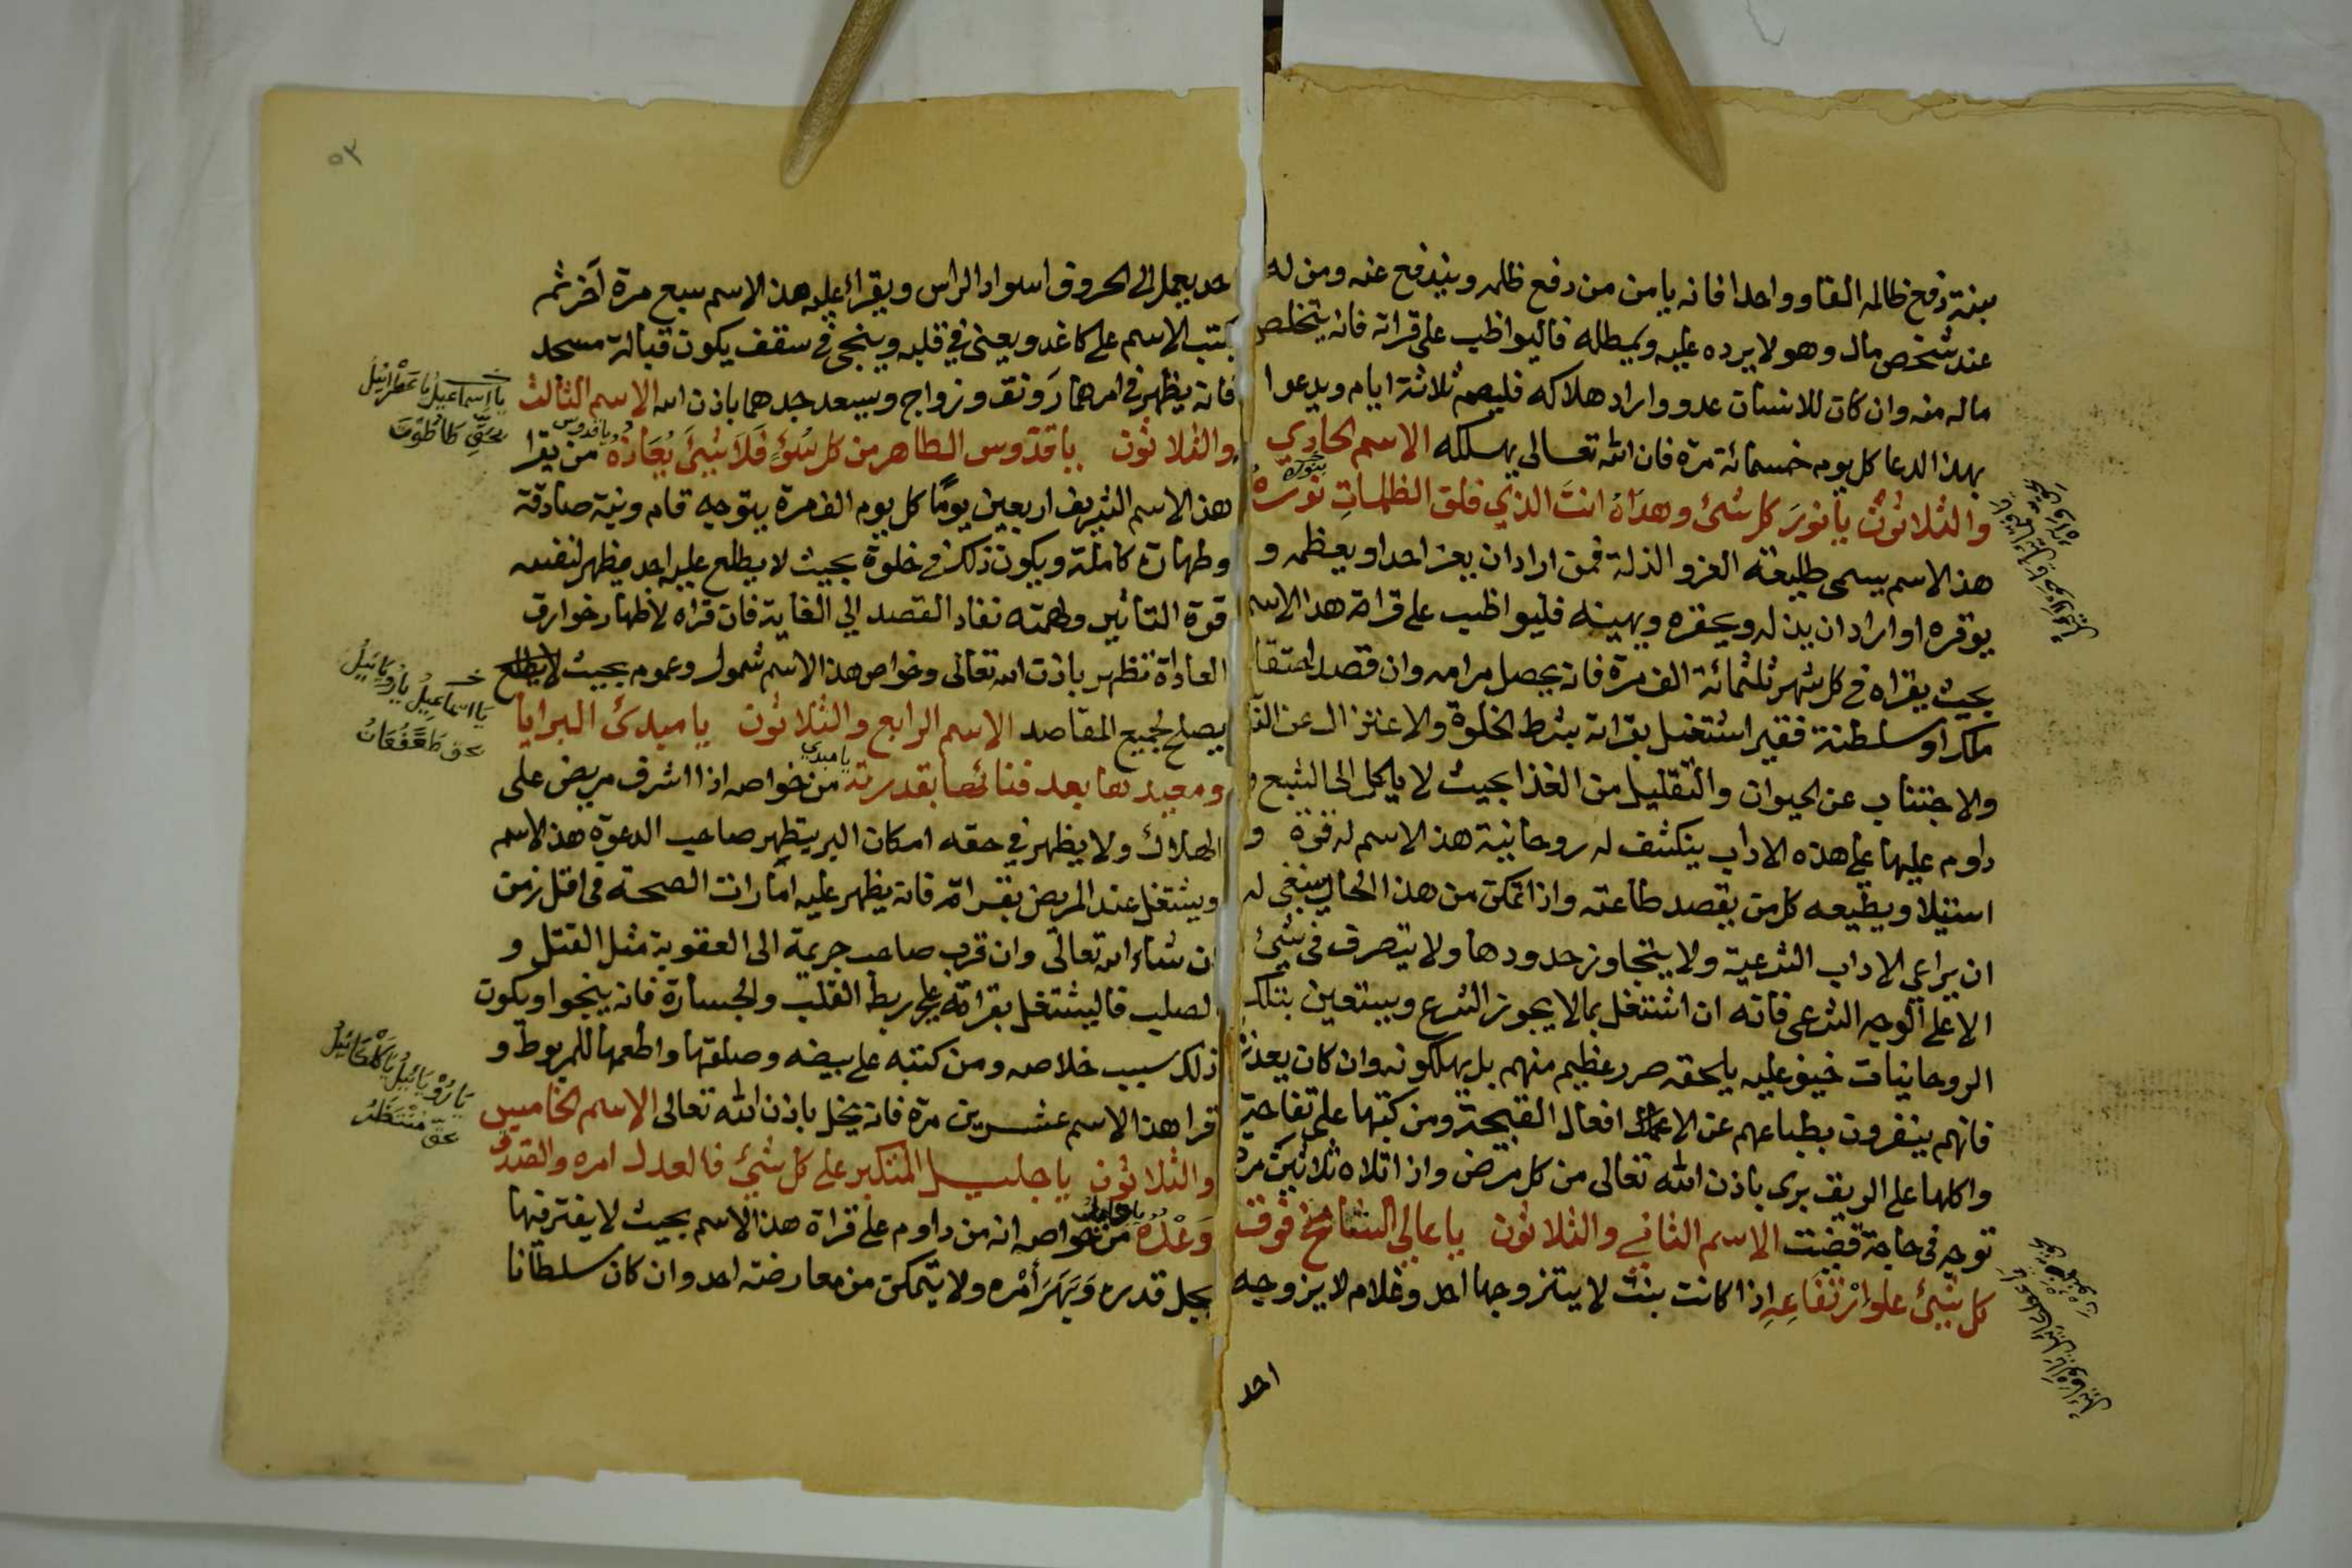 بنية دفع ظالمه الفا وواحدا فانه يامن من دفع ظلمه ويندفع عنه ومن له
عند شخص مال وهو لا يرده عليه ويمطله فاليواظب على قراته فانه يتخلص
ماله منه وان كان للانسان عدو واراد هلاكه فليصم ثلاثة ايام ويدعوا
بهذا الدعا كل يوم خمسمائة مرة فان الله تعالى يهلكه الاسم الحادي
والثلاثون يا نور كل شئ وهداه انت الذي فلق الظلمات نوره
بنوره
هذا الاسم يسمى طليعة العز والذلة فمن اراد ان يعز احدا ويعظمه و
يوقره او اراد ان يذله ويحقره ويهينه فليواظب على قراة هذا الاسم
بحيث يقراه في كل شهر ثلثمائة الف مرة فانه يحصل مرامه وان قصد احتقا
ملكا او سلطنة فقير اشتغل بقراته بشرط الخلوة والاعتزال عن
والاجتناب عن الحيوان والتقليل من الغذا بحيث لا يامل الى الشبع و
داوم عليها على هذه الاداب ينكشف له روحانية هذا الاسم له قوة و
استيلا ويطيعه كل من يقصد طاعته واذا تمكن من هذا الحال ينبغي له
ان يراعي الاداب الشرعية ولا يتجاوز حدودها ولا يتصرف في شئ
الا على الوجه الشرعي فانه ان اشتغل بما لا يجوز الشرع ويستعين بتلك
الروحانيات خيف عليه يلحقه ضرر عظيم منهم بل يهلكونه وان كان بعد
فانهم ينفرون بطباعهم عن الاعمال افعال القبيحة ومن كتبها على تفاحة
واكلها على الريق برى باذن الله تعالى من كل مرض واذا تلاه ثلاثين مرة
توجه في حاجة قضيت الاسم الثاني والثلاثون يا عالي الشامخ فوق
كل شئ علو ارتفاعه اذا كانت بنت لا يتزوجها احد وغلام لا يزوجه
احد
٥٣
احد يعمل الى الحروق اسواد الراس ويقرا عليه هذا الاسم سبع مرة آخر ثم
يكتب الاسم على كاغد ويعنى في قلبه وينجى في سقف يكون قبالة مسجد
فانه يظهر في امرهما رونق وزواج ويسعد جدهما باذن الله الاسم الثالث
والثلاثون يا قدوس الطاهر من كل سوء فلا شئ يعازه من يقرا
يا قدوس
هذا الاسم الشريف اربعين يوما كل يوم الف مرة بتوجه قام ونية صادقة
وطهارة كاملة ويكون ذلك في خلوة بحيث لا يطلع عليه احد يظهر لنفسه
قوة التاثير ولهمته نفاد القصد الي الغاية فان قراه لاظهار خوارق
العاداة تظهر باذن الله تعالى وخواص هذا الاسم شمول وعموم بحيث
يصلح لجميع المقاصد الاسم الرابع والثلاثون يا مبدئ البرايا
ومعيدها بعد فنائها بقدرته من خواصه اذا اشرف مريض على
يا مبدي
الهلاك ولا يظهر في حقه امكان البر يتطهر صاحب الدعوة هذا الاسم
ويشتغل عند المريض بقراة فانه يظهر عليه امارات الصحة في اقل زمن
ان شاء الله تعالى وان قرب صاحب جريمة الى العقوبة مثل القتل و
الصلب فاليشتغل بقراته على ربط القلب والجسارة فانه ينجوا ويكون
ذلك سبب خلاصه ومن كتبه على بيضه وصلقها واطعمها للمربوط و
قرا هذا الاسم عشرين مرة فانه يخل باذن الله تعالى الاسم الخامس
والثلاثون يا جليل المتكبر على كل شئ فالعدل امره والصدق
وعده من خواصه انه من داوم على قراة هذا الاسم بحيث لا يفتر فيها
يجل قدره ويهر أمره ولا يتمكن من معارضته احد وان كان سلطانا
يا اسماعيل يا عطرائيل
يا اسماعيل يا روكائيل
يا روبائيل يا كلكائيل